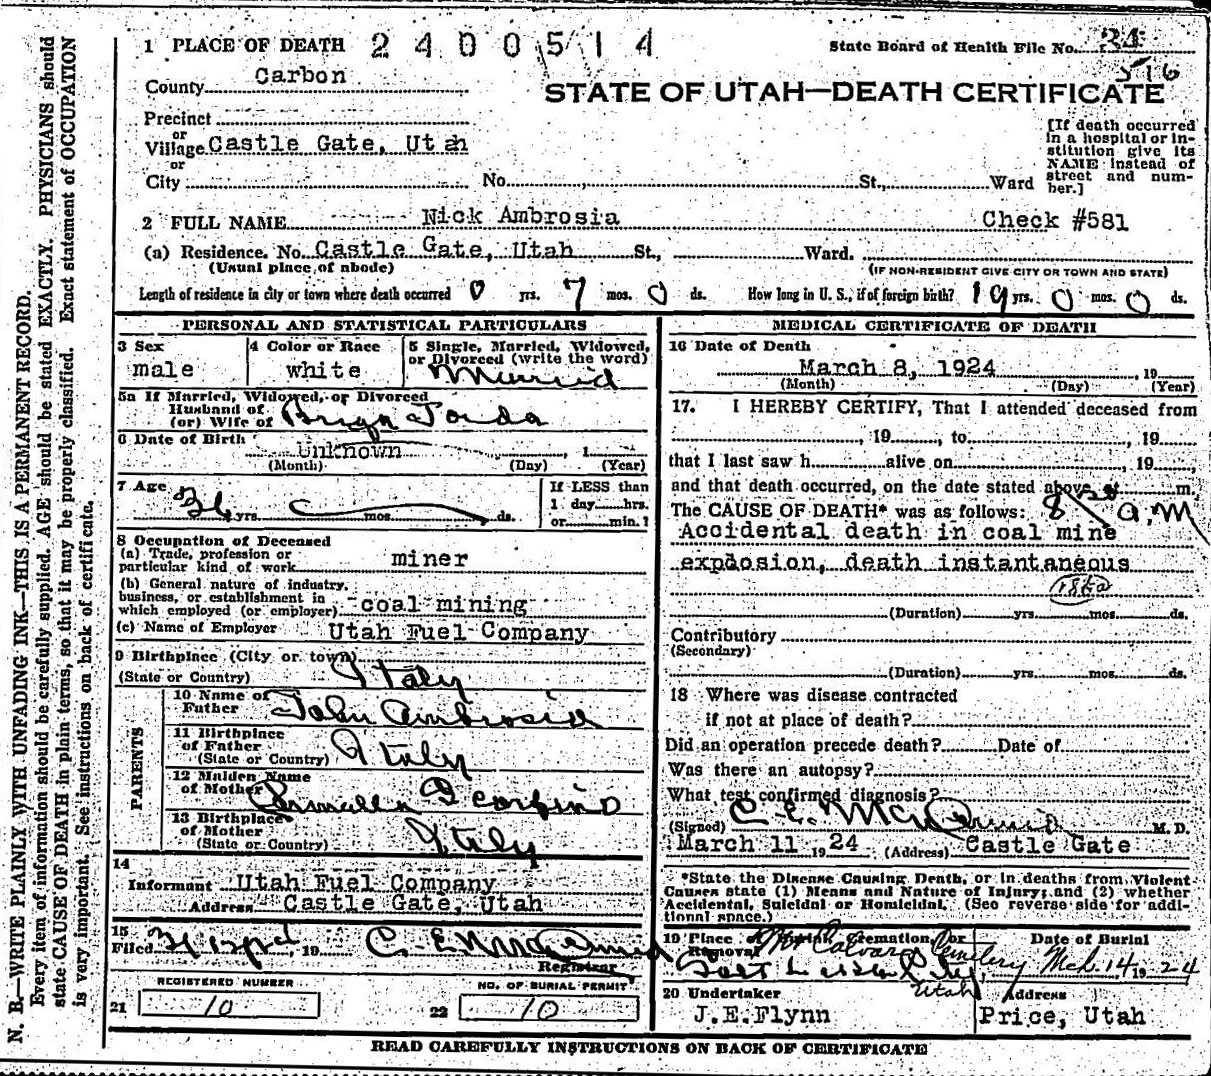 1 PLACE OF DEATH 2400514 State Board of Health File No. 24
516
County Carbon
STATE OF UTAH—DEATH CERTIFICATE
Precinct
or
Village Castle Gate, Utah
or
City No. St., Ward
[If death occurred
in a hospital or in-
stitution give its
NAME instead of
street and num-
ber.]
2 FULL NAME Nick Ambrosia Check #581
(a) Residence. No. Castle Gate, Utah St., Ward.
(Usual place of abode) (IF NON-RESIDENT GIVE CITY OR TOWN AND STATE)
Length of residence in city or town where death occurred 0 yrs. 7 mos. 0 ds. How long in U. S., if of foreign birth? 19 yrs. 0 mos. 0 ds.
PERSONAL AND STATISTICAL PARTICULARS
3 Sex 4 Color or Race 5 Single, Married, Widowed,
or Divorced (write the word)
male white Married
5a If Married, Widowed, or Divorced
Husband of
(or) Wife of
6 Date of Birth
Unknown , 1
(Month) (Day) (Year)
7 Age If LESS than
36 yrs. mos. ds. 1 day hrs.
or min.?
8 Occupation of Deceased
(a) Trade, profession or
particular kind of work miner
(b) General nature of industry,
business, or establishment in
which employed (or employer) coal mining
(c) Name of Employer Utah Fuel Company
9 Birthplace (City or town)
(State or Country) Italy
PARENTS
10 Name of
Father John Ambrosia
11 Birthplace
of Father
(State or Country) Italy
12 Maiden Name
of Mother
13 Birthplace
of Mother
(State or Country) Italy
14
Informant Utah Fuel Company
Address Castle Gate, Utah
15
Filed , 19 C. E. McDermid
Registrar
REGISTERED NUMBER NO. OF BURIAL PERMIT
21 10 22 10
MEDICAL CERTIFICATE OF DEATH
16 Date of Death
March 8, 1924 , 19
(Month) (Day) (Year)
17. I HEREBY CERTIFY, That I attended deceased from
, 19 , to , 19
that I last saw h alive on , 19 ,
and that death occurred, on the date stated above, at m.
The CAUSE OF DEATH* was as follows: 8 30 a.m
Accidental death in coal mine
explosion, death instantaneous
(Duration) yrs. mos. ds.
Contributory
(Secondary)
(Duration) yrs. mos. ds.
18 Where was disease contracted
if not at place of death?
Did an operation precede death? Date of
Was there an autopsy?
What test confirmed diagnosis?
(Signed) C. E. McDermid M. D.
March 11 19 24 (Address) Castle Gate
*State the Disease Causing Death, or in deaths from Violent
Causes state (1) Means and Nature of Injury; and (2) whether
Accidental, Suicidal or Homicidal. (See reverse side for addi-
tional space.)
19 Place of Burial, Cremation, or Date of Burial
Removal Mt. Calvary Cemetery Mch. 14 19 24
Salt Lake City,
Utah
20 Undertaker Address
J.E.Flynn Price, Utah
READ CAREFULLY INSTRUCTIONS ON BACK OF CERTIFICATE
N. B.—WRITE PLAINLY WITH UNFADING INK—THIS IS A PERMANENT RECORD.
Every item of information should be carefully supplied. AGE should be stated EXACTLY. PHYSICIANS should
state CAUSE OF DEATH in plain terms, so that it may be properly classified. Exact statement of OCCUPATION
is very important. See instructions on back of certificate.